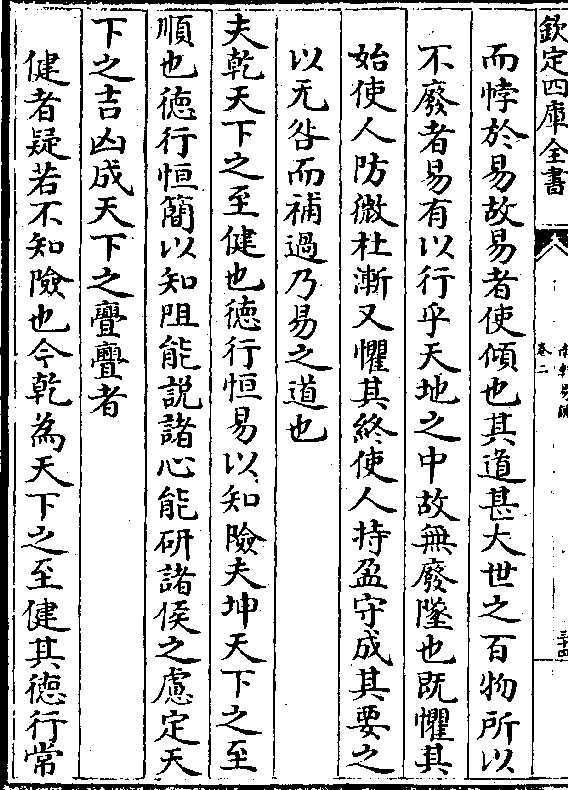 欽定四庫全書
卷二
三十四
而悖於易故易者使傾也其道甚大世之百物所以
不廢者易有以行乎天地之中故無廢墜也既懼其
始使人防微杜漸又懼其終使人持盈守成其要之
以无咎而補過乃易之道也
夫乾天下之至健也徳行恒易以知險夫坤天下之至
順也徳行恒簡以知阻能説諸心能研諸侯之慮定天
下之吉凶成天下之亹亹者
健者疑若不知險也今乾為天下之至健其徳行常